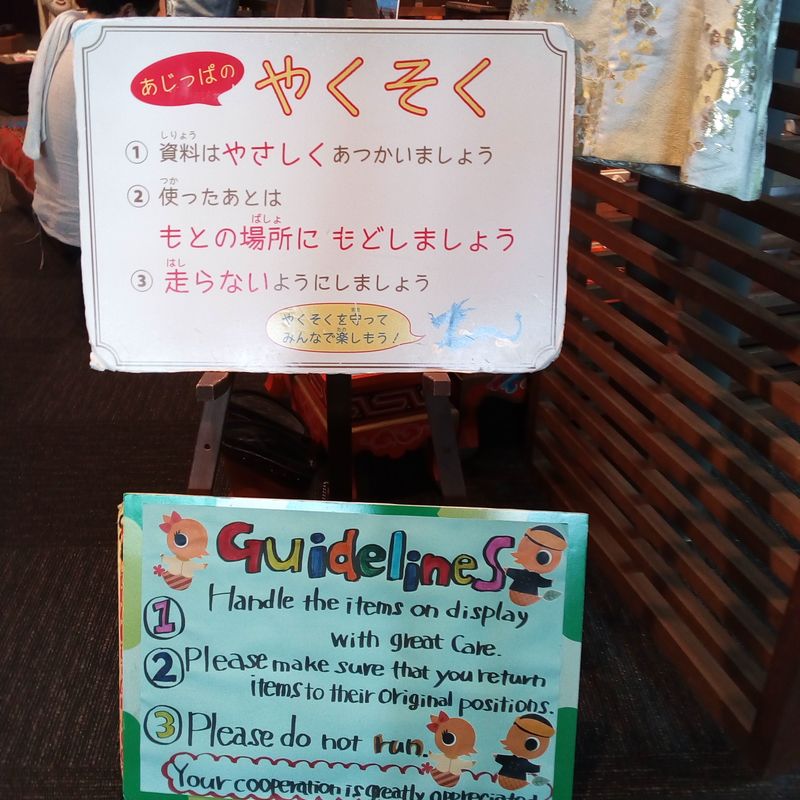 あじっぱの
やくそく
① 資料はやさしくあつかいましょう
しりょう
② 使ったあとは
つか
もとの場所に もどしましょう
ばしょ
③ 走らないようにしましょう
はし
やくそくを守って
まも
みんなで楽しもう！
たの
Guidelines
1 Handle the items on display
with great Care.
2 Please make sure that you return
items to their original positions.
3 Please do not run.
Your cooperation is greatly appreciated